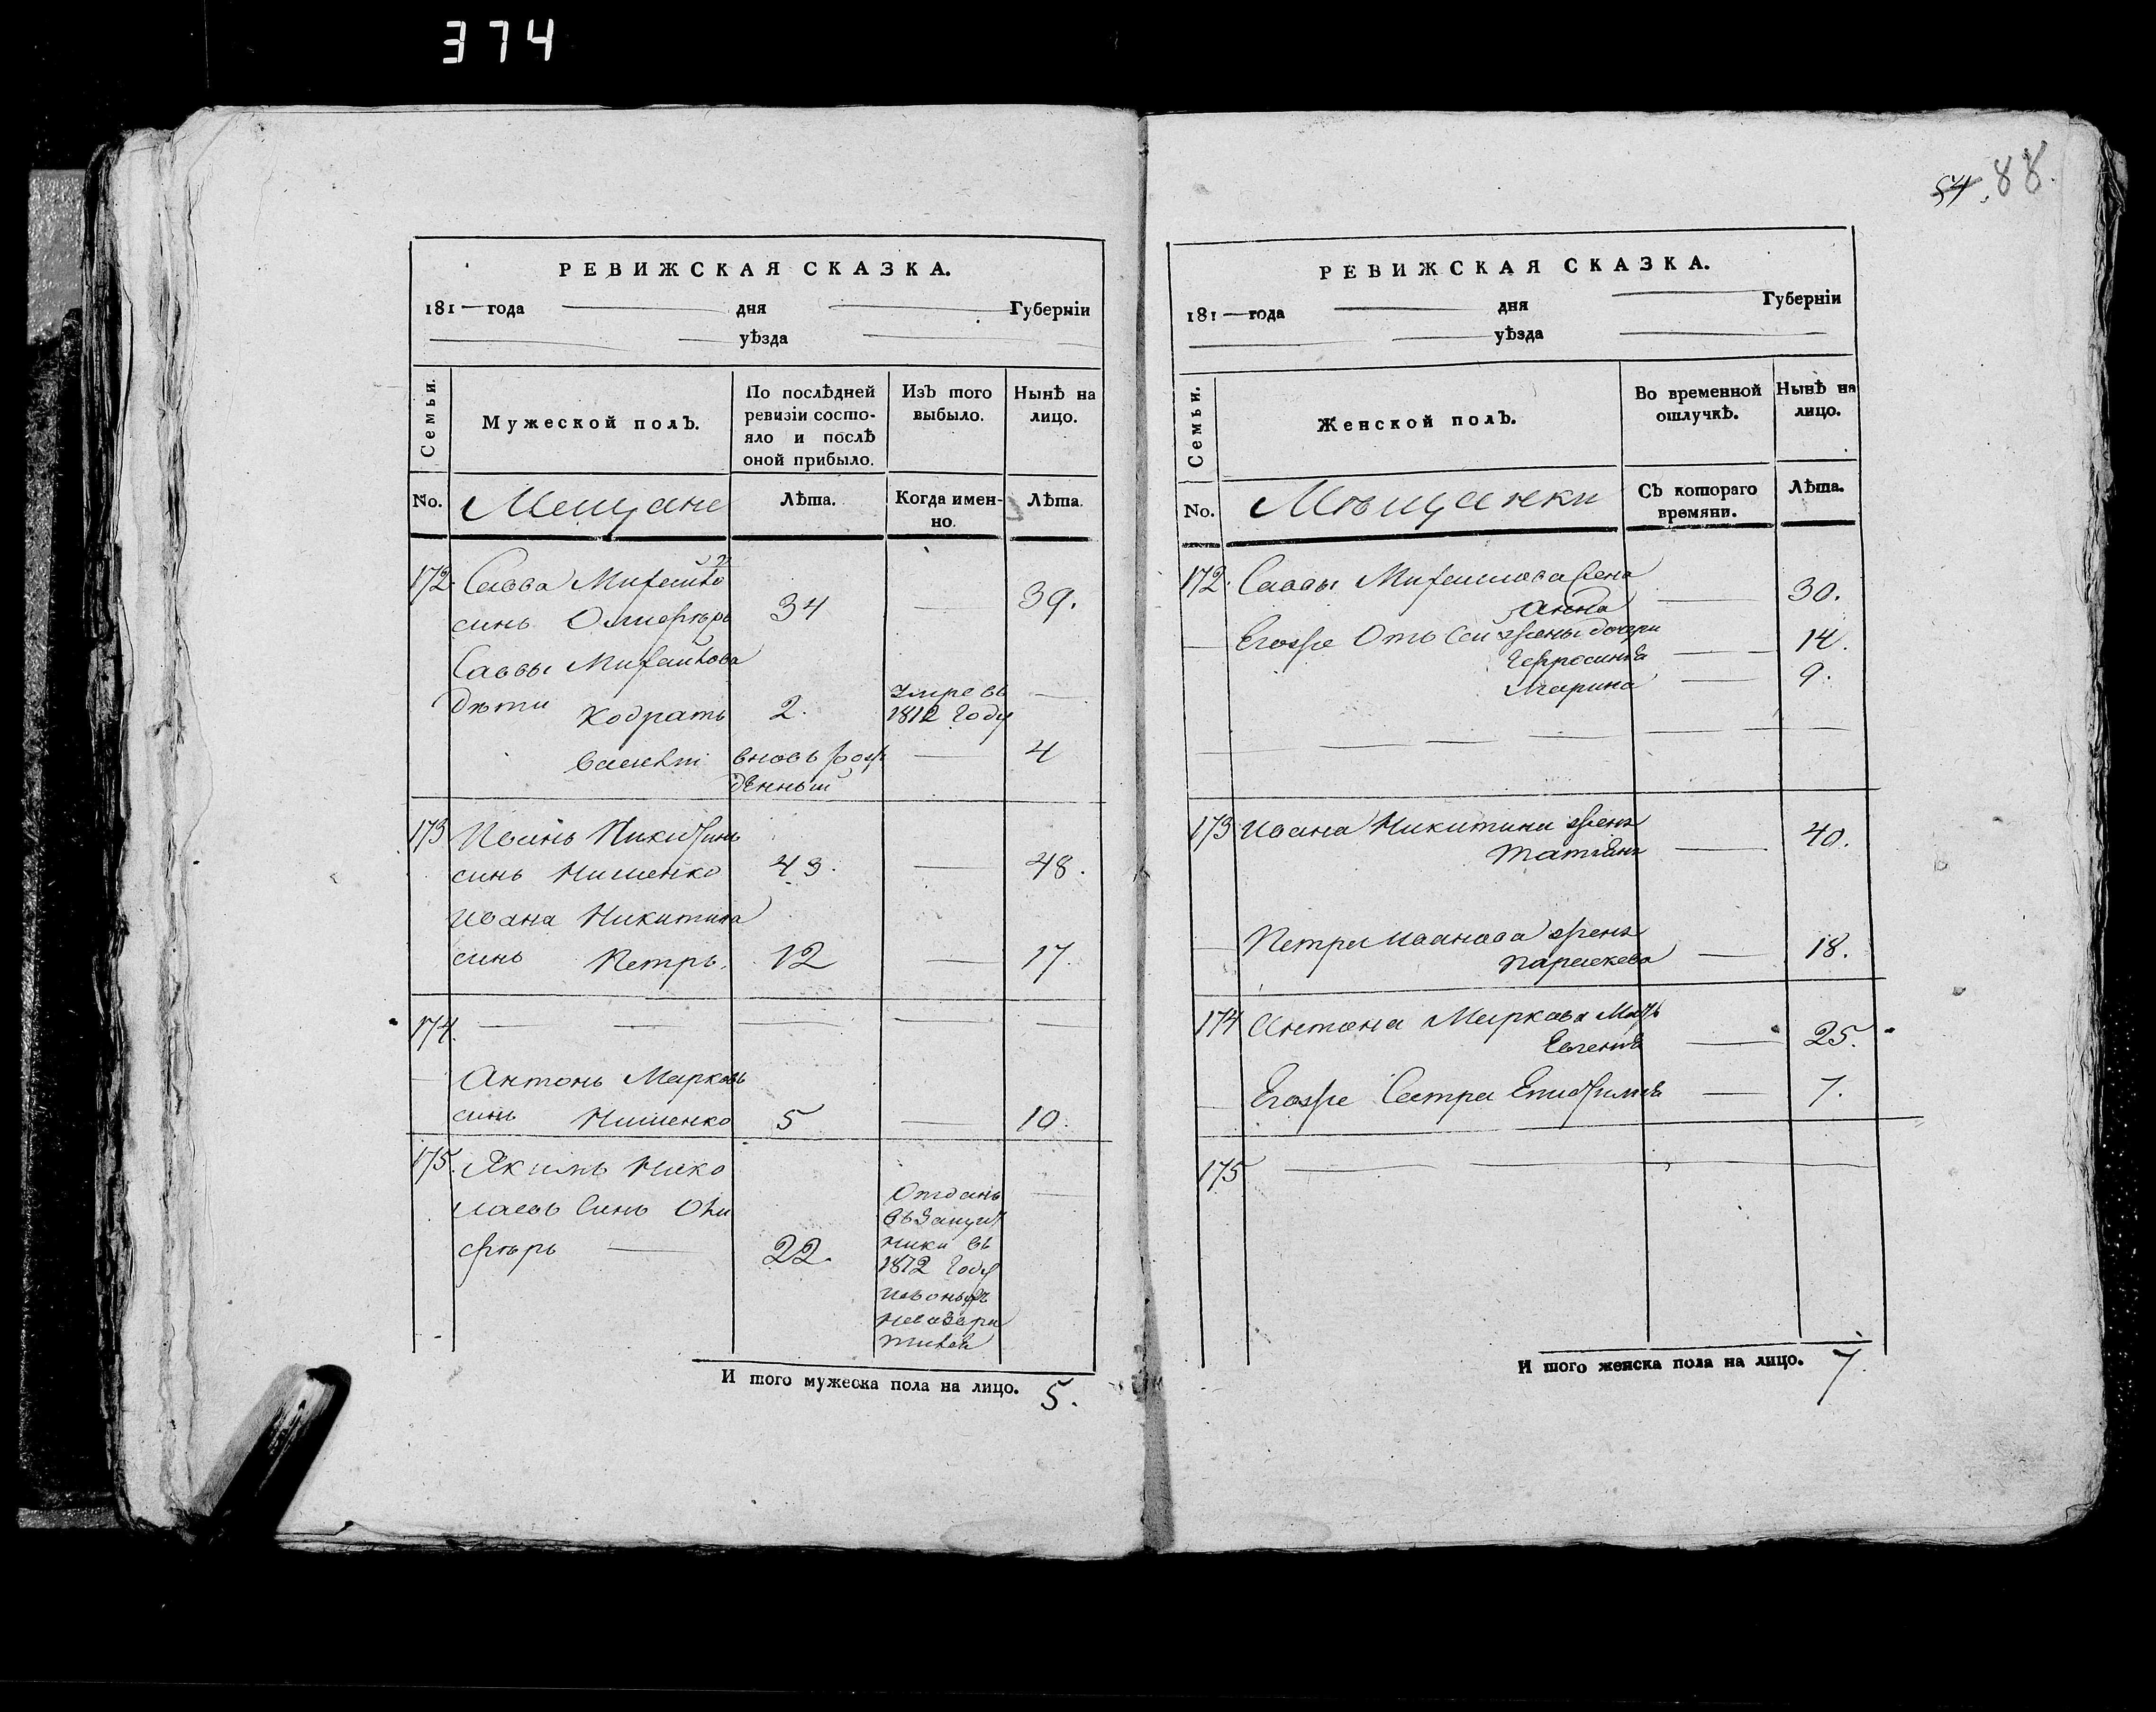 374
54 88.
РЕВИЖСКАЯ СКАЗКА.
181 года дня Губерніи
уѣзда
Семьи.
Мужеской полъ.
По послѣдней
ревизіи состо-
яло и послѣ
оной прибыло.
Изъ того
выбыло.
Нынѣ на
лицо.
No.
Мещане
Лѣта.
Когда имен-
но.
Лѣта.
172. Савва Михайло
синъ 34 39.
Саввы Михайлова
дѣти Кодратъ 2. умре въ
1812 году
вновь рож 4
денный
173 Иванъ Никитинъ
синъ Нименко 43. 48.
Ивана Никитина
синъ Петръ. 12 17.
174.
Антонъ Марковъ
синъ Нименко 5 10.
175. Якимъ Нико
лаевъ синъ Они
сфѣръ 22.
Отданъ
въ
ники въ
1812 году
И того мужеска пола на лицо. 5.
РЕВИЖСКАЯ СКАЗКА.
181 года дня Губерніи
уѣзда
Семьи.
Женской полъ.
Во временной
отлучкѣ.
Нынѣ на
лицо.
No.
Мѣщанки
Съ котораго
времяни.
Лѣта.
172. Саввы Михайлова жена
Анна 30.
Егожъ отъ сей жены дочери
14.
Марина 9.
173 Ивана Никитина жена
Татіяна 40.
Петра Иванова жена
Параскева 18.
174 Антона Маркова мать
Евгенія 25.
Егоже сестра 7.
175
И того женска пола на лицо. 7.